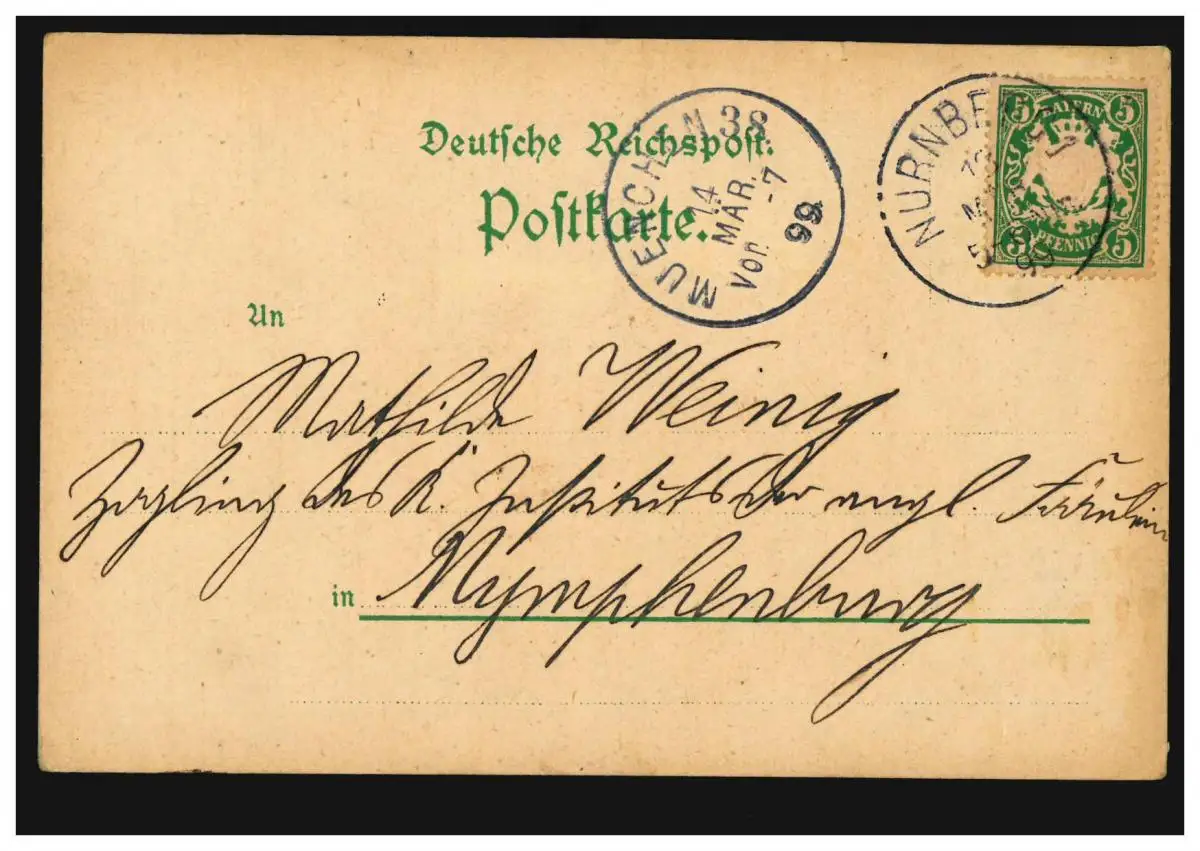 Deutsche Reichspost.
Postkarte.
MUENCHEN 38
14
MÄR.
Vor. -7
99
NÜRNBE
13
M
5
99
5 BAYERN 5
5 PFENNIG 5
An
Mathilde Weinig
Zögling des K. Instituts der engl. Fräulein
in Nymphenburg